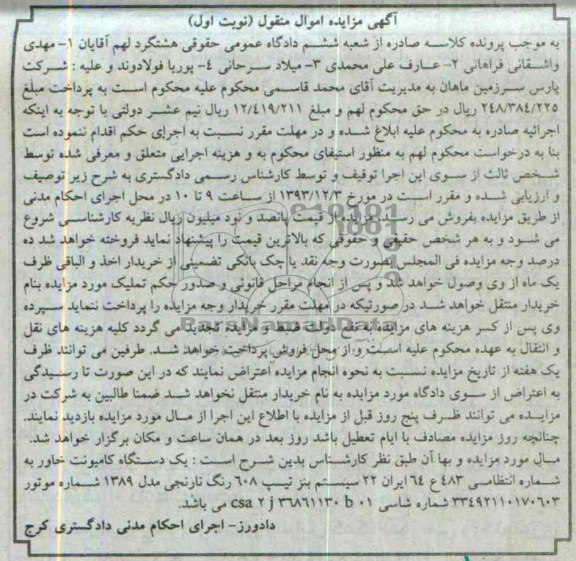 آگهی مزایده اموال منقول (نوبت اول)
به موجب پرونده کلاسه صادره از شعبه ششم دادگاه عمومی حقوقی هشتگرد لهم آقایان ۱- مهدی
واشقانی فراهانی ۲- عارف علی محمدی ۳- میلاد سرحانی ٤- پوریا فولادوند و علیه : شرکت
پارس سرزمین ماهان به مدیریت آقای محمد قاسمی محکوم علیه محکوم است به پرداخت مبلغ
۲٤۸/۳۸٤/۲۲۵ ریال در حق محکوم لهم و مبلغ ۱۲/٤۱۹/۲۱۱ ریال نیم عشر دولتی با توجه به اینکه
اجرائیه صادره به محکوم علیه ابلاغ شده و در مهلت مقرر نسبت به اجرای حکم اقدام ننموده است
بنا به درخواست محکوم لهم به منظور استیفای محکوم به و هزینه اجرایی متعلق و معرفی شده توسط
شخص ثالث از سوی این اجرا توقیف و توسط کارشناس رسمی دادگستری به شرح زیر توصیف
و ارزیابی شده و مقرر است در مورخ ۱۳۹۳/۱۲/۳ از ساعت ۹ تا ۱۰ در محل اجرای احکام مدنی
از طریق مزایده بفروش می رسد. مزایده از قیمت پانصد و نود میلیون ریال نظریه کارشناسی شروع
می شود و به هر شخص حقیقی و حقوقی که بالاترین قیمت را پیشنهاد نماید فروخته خواهد شد ده
درصد وجه مزایده فی المجلس بصورت وجه نقد یا چک بانکی تضمینی از خریدار اخذ و الباقی ظرف
یک ماه از وی وصول خواهد شد و پس از انجام مراحل قانونی و صدور حکم تملیک مورد مزایده بنام
خریدار منتقل خواهد شد در صورتیکه در مهلت مقرر خریدار وجه مزایده را پرداخت ننماید سپرده
وی پس از کسر هزینه های مزایده به نفع دولت ضبط و مزایده تجدید می گردد کلیه هزینه های نقل
و انتقال به عهده محکوم علیه است و از محل فروش پرداخت خواهد شد. طرفین می توانند ظرف
یک هفته از تاریخ مزایده نسبت به نحوه انجام مزایده اعتراض نمایند که در این صورت تا رسیدگی
به اعتراض از سوی دادگاه مورد مزایده به نام خریدار منتقل نخواهد شد ضمنا طالبین به شرکت در
مزایده می توانند ظرف پنج روز قبل از مزایده با اطلاع این اجرا از مال مورد مزایده بازدید نمایند.
چنانچه روز مزایده مصادف با ایام تعطیل باشد روز بعد در همان ساعت و مکان برگزار خواهد شد.
مال مورد مزایده و بها آن طبق نظر کارشناس بدین شرح است : یک دستگاه کامیونت خاور به
شماره انتظامی ٤۸۳ ع ٦٤ ایران ۲۲ سیستم بنز تیپ ٦۰۸ رنگ نارنجی مدل ۱۳۸۹ شماره موتور
۳۳٤۹۲۱۱۰۱۷۰٦۰۳ شماره شاسی csa ۲ j ۳٦۸٦۱۱۳۰ b ۰۱ می باشد.
دادورز- اجرای احکام مدنی دادگستری کرج